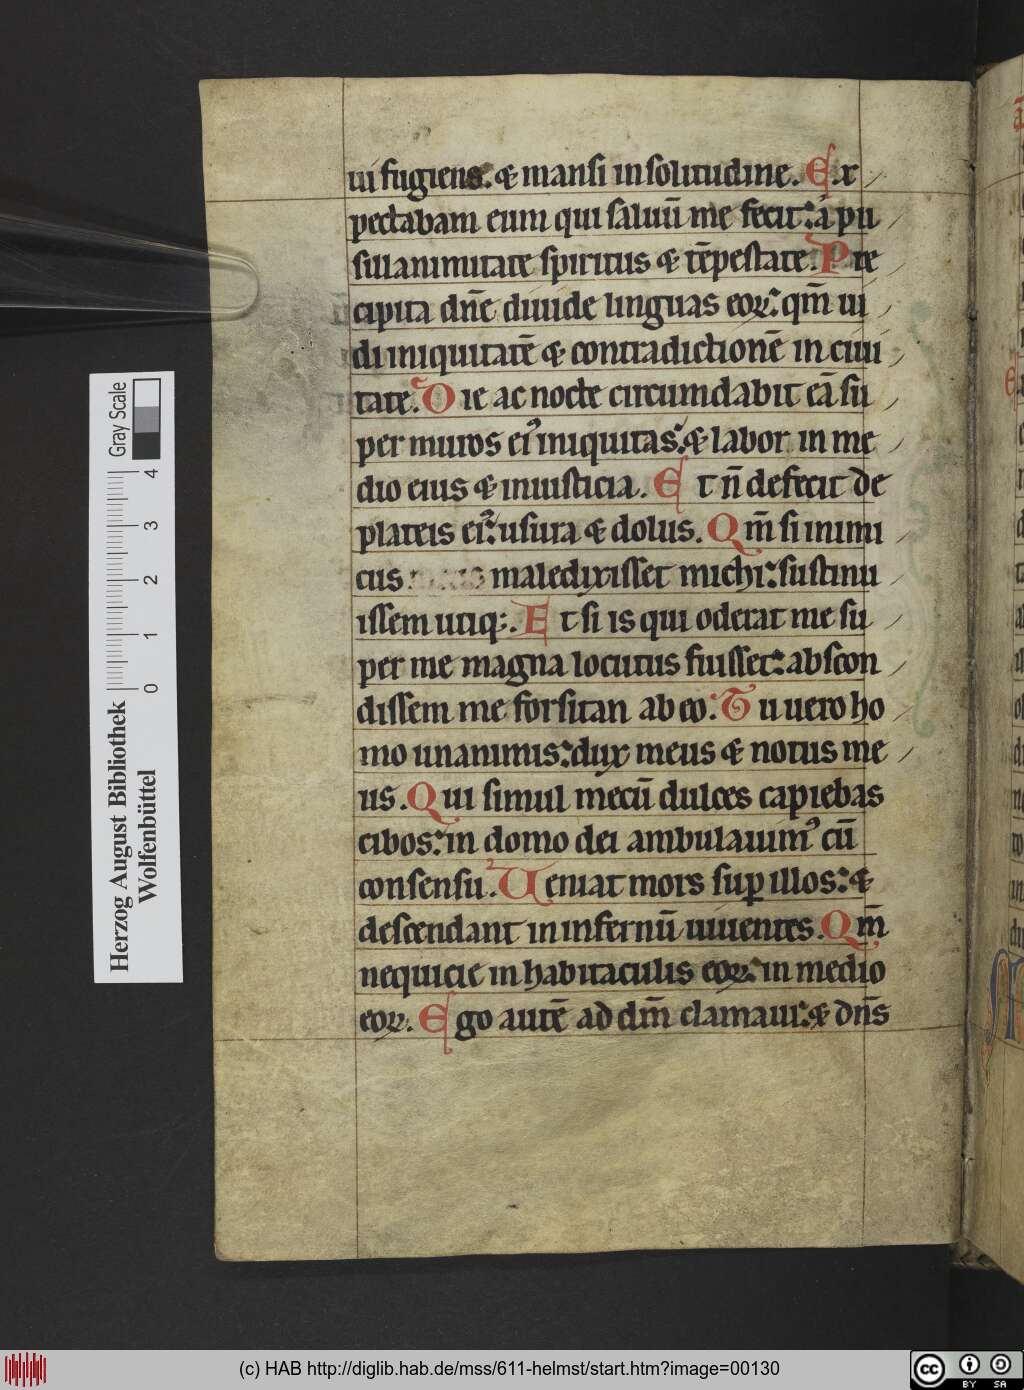 ui fugiens. & mansi in solitudine. Ex
pectabam eum qui saluū me fecit: a pu
sillanimitate spiritus & tēpestate. Pre
cipita dn̄e diuide linguas eoꝝ: qm̄ ui
di iniquitatē & contradictionē in ciui
tate. Die ac nocte circumdabit eā su
per muros ei᾽ iniquitas: & labor in me
dio eius & iniusticia. Et n̄ defecit de
plateis ei᾽: usura & dolus. Qm̄ si inimi
cus maledixisset michi: sustinu
issem utiq;. Et si is qui oderat me su
per me magna locutus fuisset: abscon
dissem me forsitan ab eo. Tu uero ho
mo unanimis: dux meus & notus me
us. Qui simul mecū dulces capiebas
cibos: in domo dei ambulauim᾽ cū
consensu. Ueniat mors suꝑ illos: &
descendant in infernū uiuentes. Qm̄
nequicie in habitaculis eoꝝ: in medio
eoꝝ. Ego autē ad dm̄ clamaui: & dn̄s
Gray Scale
4
3
2
1
0
Herzog August Bibliothek
Wolfenbüttel
(c) HAB http://diglib.hab.de/mss/611-helmst/start.htm?image=00130
cc BY SA